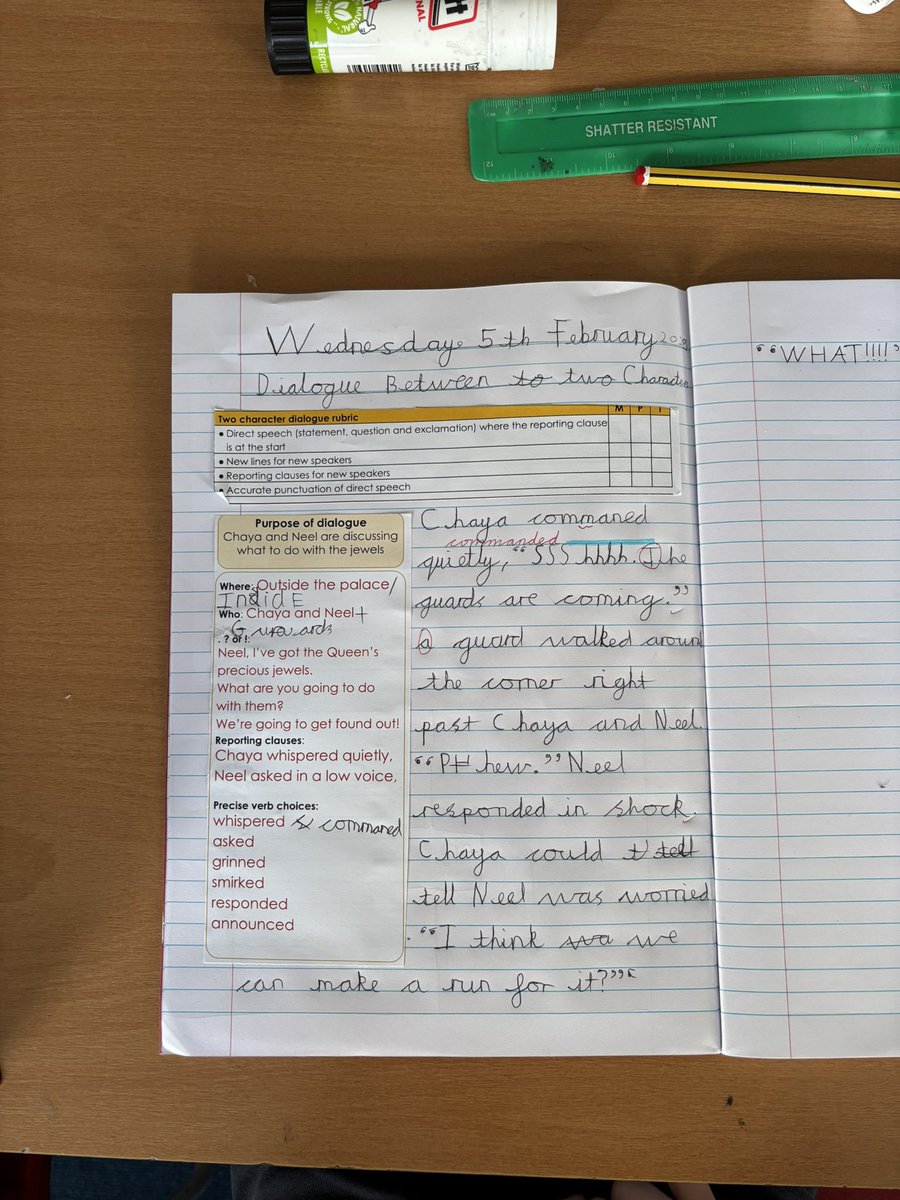 NATURAL
RECYCLE
SHATTER RESISTANT
Wednesday 5th February
Dialogue Between to two Character
“WHAT!!!!”
Two character dialogue rubric M P I
• Direct speech (statement, question and exclamation) where the reporting clause
is at the start
• New lines for new speakers
• Reporting clauses for new speakers
• Accurate punctuation of direct speech
Purpose of dialogue
Chaya and Neel are discussing
what to do with the jewels
Where: Outside the palace/
InsidE
Who: Chaya and Neel+
Guruards
. ? or !:
Neel, I've got the Queen's
precious jewels.
What are you going to do
with them?
We're going to get found out!
Reporting clauses:
Chaya whispered quietly,
Neel asked in a low voice,
Precise verb choices:
whispered & commaned
asked
grinned
smirked
responded
announced
Chaya commaned
commanded
quietly, “SSShhhh. The
guards are coming.”
a guard walked around
the corner right
past Chaya and Neel.
“PHhew.” Neel
responded in shock.
Chaya could t tell
tell Neel was worried
. “I think wa we
can make a run for it?”